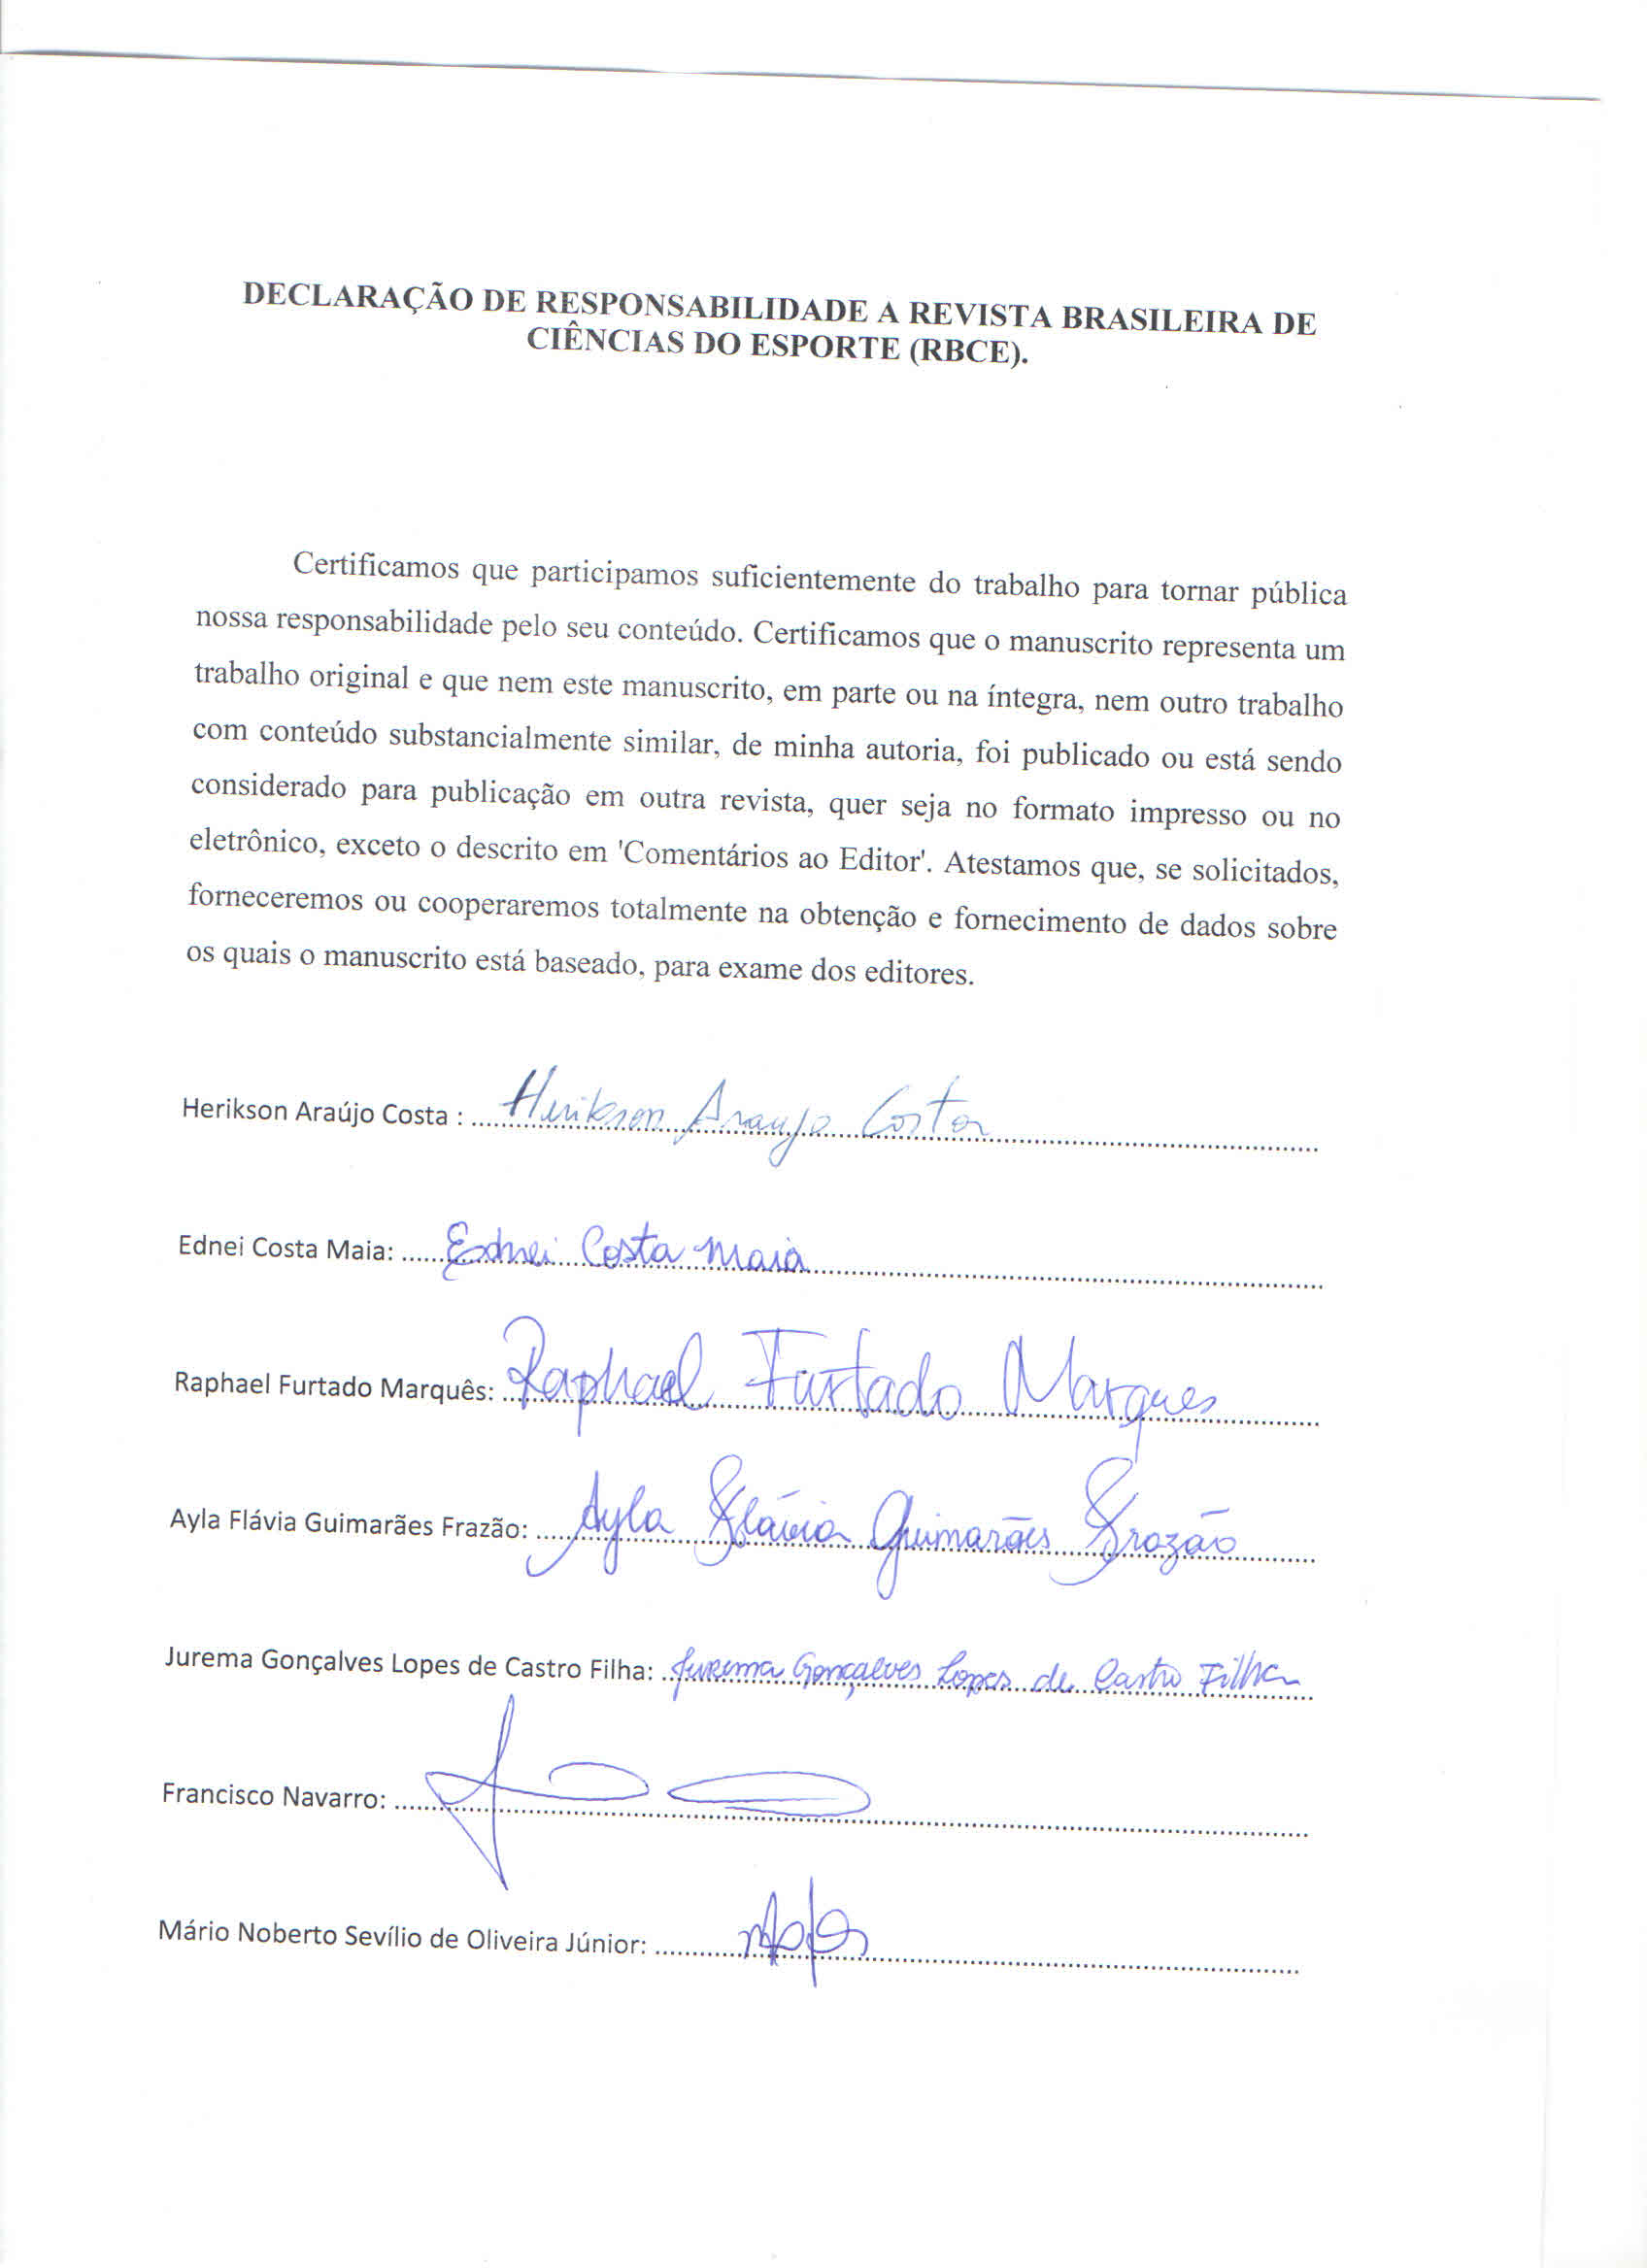 DECLARAÇÃO DE RESPONSABILIDADE A REVISTA BRASILEIRA DE
CIÊNCIAS DO ESPORTE (RBCE).
Certificamos que participamos suficientemente do trabalho para tornar pública
nossa responsabilidade pelo seu conteúdo. Certificamos que o manuscrito representa um
trabalho original e que nem este manuscrito, em parte ou na íntegra, nem outro trabalho
com conteúdo substancialmente similar, de minha autoria, foi publicado ou está sendo
considerado para publicação em outra revista, quer seja no formato impresso ou no
eletrônico, exceto o descrito em 'Comentários ao Editor'. Atestamos que, se solicitados,
forneceremos ou cooperaremos totalmente na obtenção e fornecimento de dados sobre
os quais o manuscrito está baseado, para exame dos editores.
Herikson Araújo Costa : Herikson Araujo Costa
Ednei Costa Maia: Ednei Costa Maia
Raphael Furtado Marquês: Raphael Furtado Marques
Ayla Flávia Guimarães Frazão: Ayla Flávia Guimarães Frazão
Jurema Gonçalves Lopes de Castro Filha: Jurema Gonçalves Lopes de Castro Filha
Francisco Navarro:
Mário Noberto Sevílio de Oliveira Júnior: